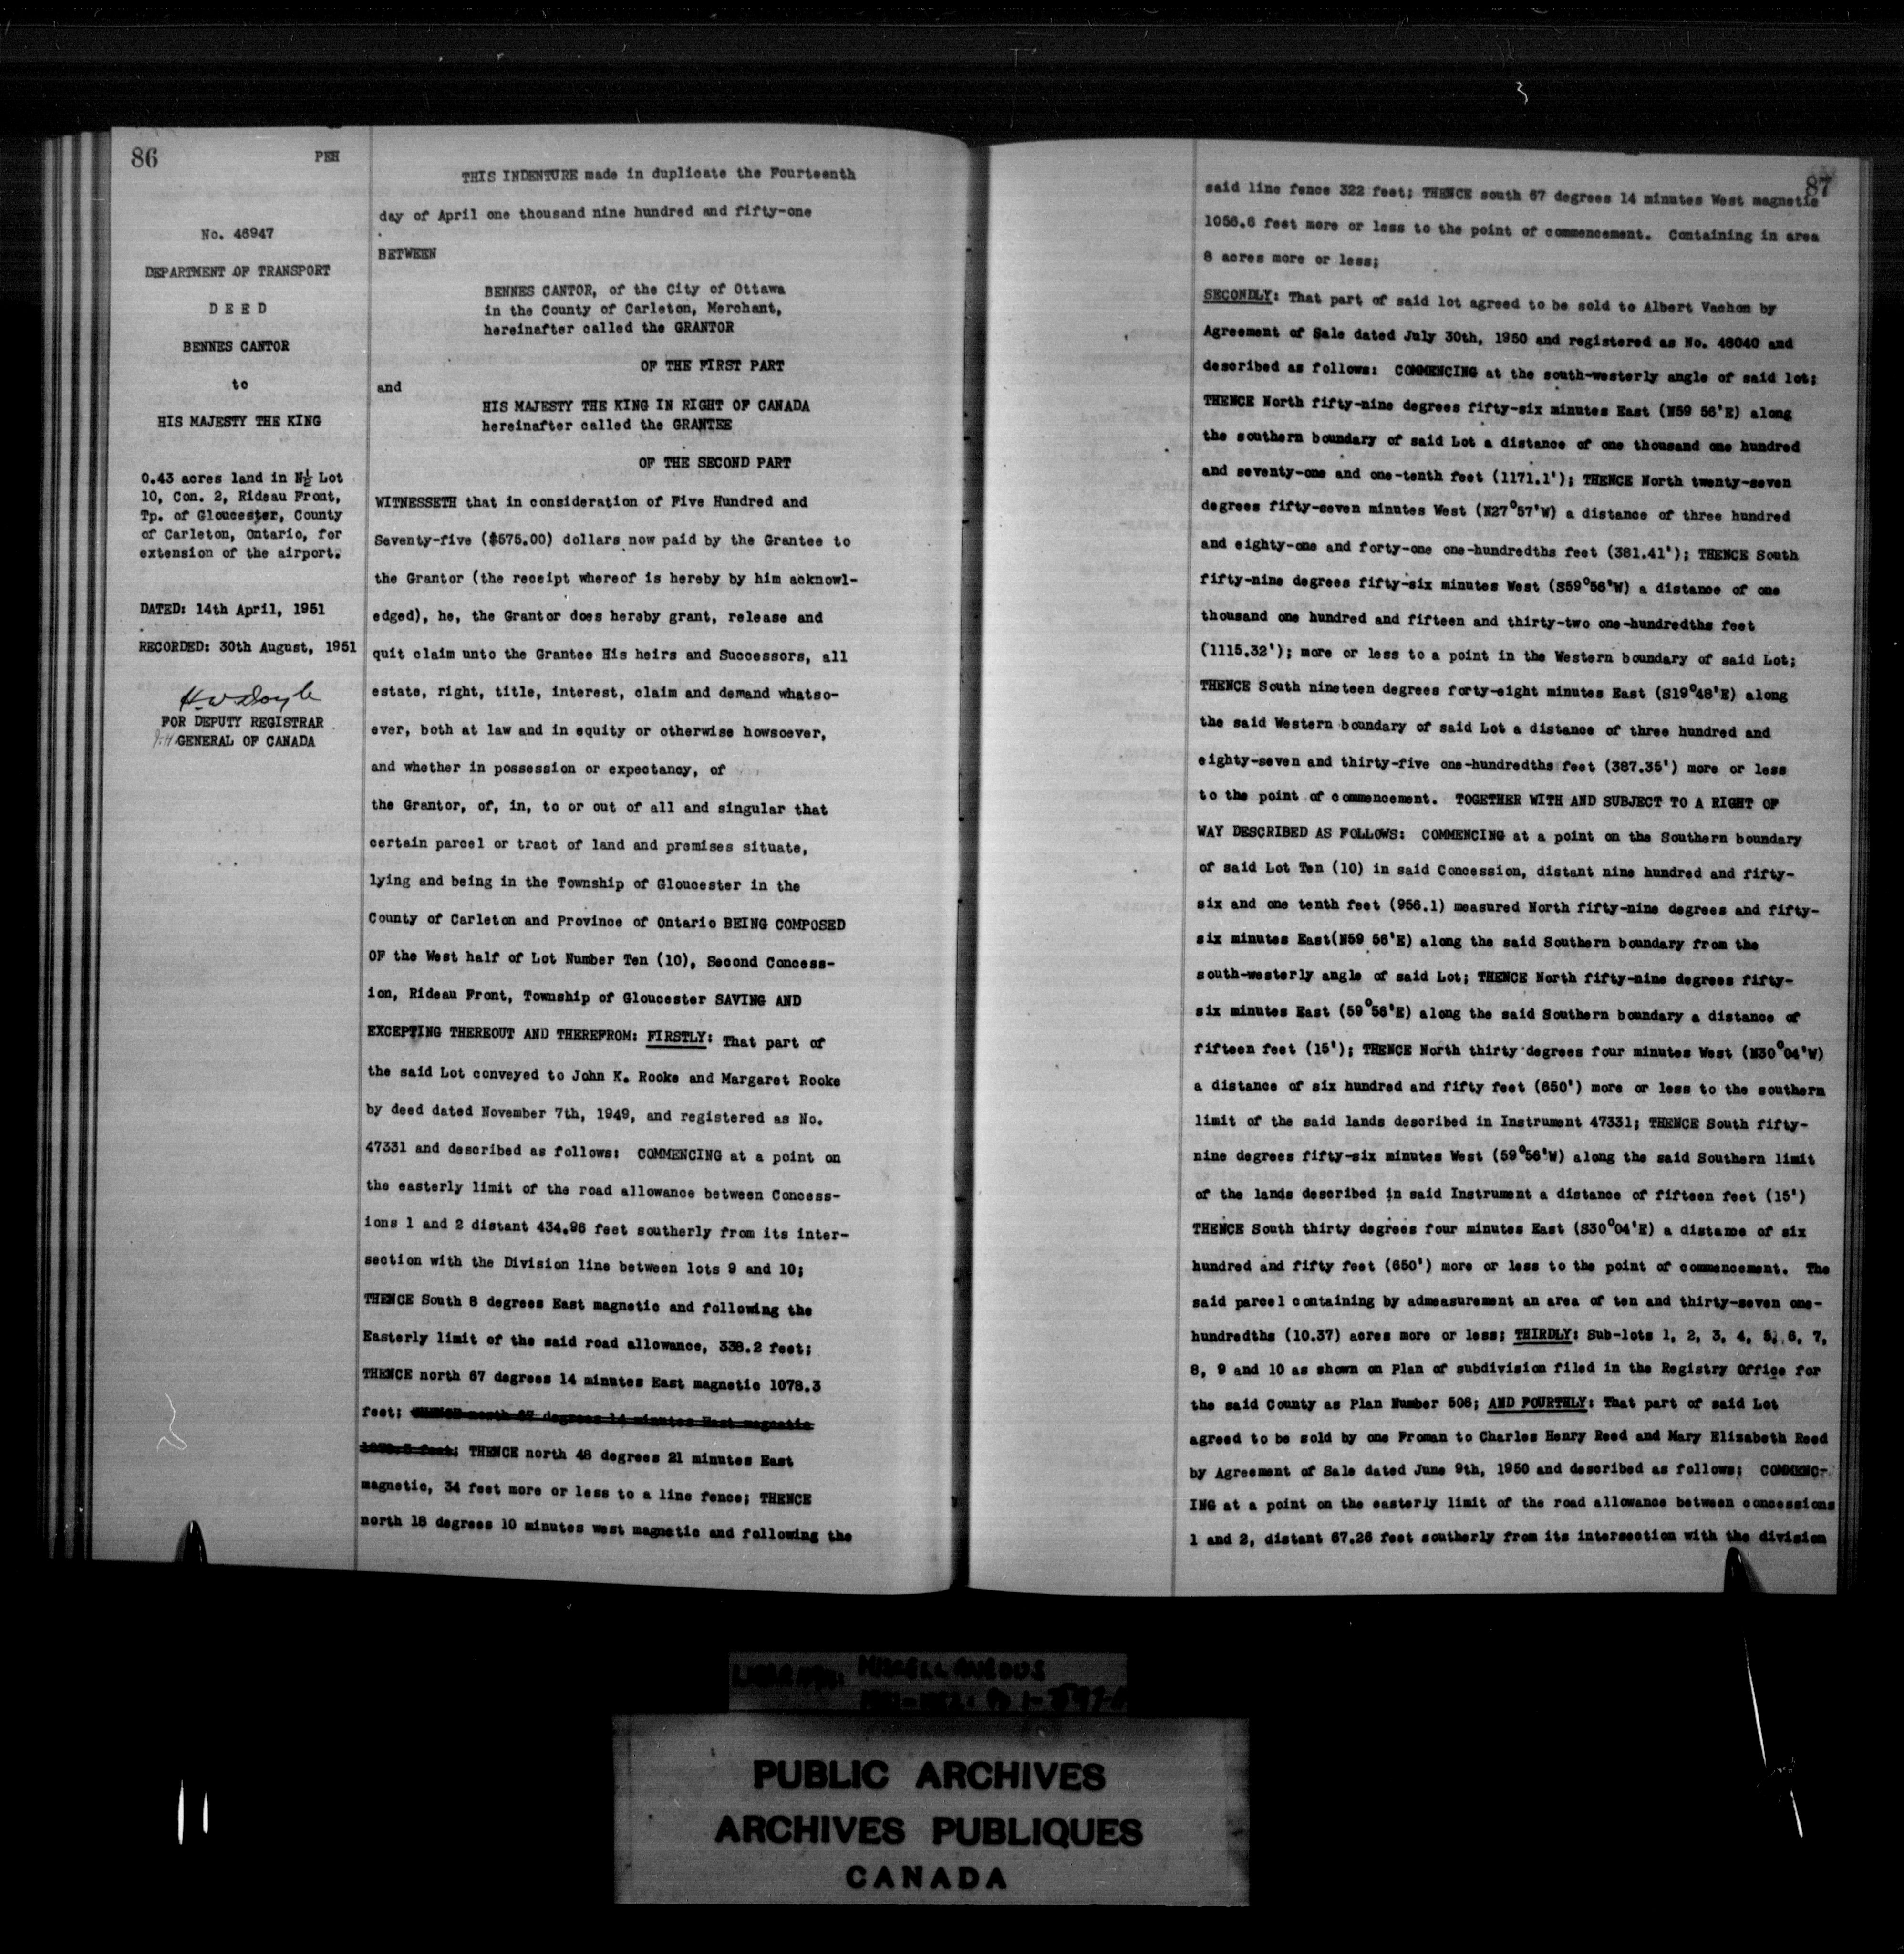 86
PEH
No. 46947
DEPARTMENT OF TRANSPORT
D E E D
BENNES CANTOR
to
HIS MAJESTY THE KING
0.43 acres land in N½ Lot
10, Con. 2, Rideau Front,
Tp. of Gloucester, County
of Carleton, Ontario, for
extension of the airport.
DATED: 14th April, 1951
RECORDED: 30th August, 1951
FOR DEPUTY REGISTRAR
GENERAL OF CANADA
THIS INDENTURE made in duplicate the Fourteenth
day of April one thousand nine hundred and fifty-one
BETWEEN
BENNES CANTOR, of the City of Ottawa
in the County of Carleton, Merchant,
hereinafter called the GRANTOR
OF THE FIRST PART
and
HIS MAJESTY THE KING IN RIGHT OF CANADA
hereinafter called the GRANTEE
OF THE SECOND PART
WITNESSETH that in consideration of Five Hundred and
Seventy-five ($575.00) dollars now paid by the Grantee to
the Grantor (the receipt whereof is hereby by him acknowl-
edged), he, the Grantor does hereby grant, release and
quit claim unto the Grantee His heirs and Successors, all
estate, right, title, interest, claim and demand whatso-
ever, both at law and in equity or otherwise howsoever,
and whether in possession or expectancy, of
the Grantor, of, in, to or out of all and singular that
certain parcel or tract of land and premises situate,
lying and being in the Township of Gloucester in the
County of Carleton and Province of Ontario BEING COMPOSED
OF the West half of Lot Number Ten (10), Second Concess-
ion, Rideau Front, Township of Gloucester SAVING AND
EXCEPTING THEREOUT AND THEREFROM: FIRSTLY: That part of
the said Lot conveyed to John K. Rooke and Margaret Rooke
by deed dated November 7th, 1949, and registered as No.
47331 and described as follows: COMMENCING at a point on
the easterly limit of the road allowance between Concess-
ions 1 and 2 distant 434.96 feet southerly from its inter-
section with the Division line between lots 9 and 10;
THENCE South 8 degrees East magnetic and following the
Easterly limit of the said road allowance, 338.2 feet;
THENCE north 67 degrees 14 minutes East magnetic 1078.3
feet; THENCE north 67 degrees 14 minutes East magnetic
1078.3 feet; THENCE north 48 degrees 21 minutes East
magnetic, 34 feet more or less to a line fence; THENCE
north 18 degrees 10 minutes west magnetic and following the
87
said line fence 322 feet; THENCE south 67 degrees 14 minutes West magnetic
1056.6 feet more or less to the point of commencement. Containing in area
8 acres more or less;
SECONDLY: That part of said lot agreed to be sold to Albert Vachon by
Agreement of Sale dated July 30th, 1950 and registered as No. 48040 and
described as follows: COMMENCING at the south-westerly angle of said lot;
THENCE North fifty-nine degrees fifty-six minutes East (N59 56'E) along
the southern boundary of said Lot a distance of one thousand one hundred
and seventy-one and one-tenth feet (1171.1'); THENCE North twenty-seven
degrees fifty-seven minutes West (N27°57'W) a distance of three hundred
and eighty-one and forty-one one-hundredths feet (381.41'); THENCE South
fifty-nine degrees fifty-six minutes West (S59°56'W) a distance of one
thousand one hundred and fifteen and thirty-two one-hundredths feet
(1115.32'); more or less to a point in the Western boundary of said Lot;
THENCE South nineteen degrees forty-eight minutes East (S19°48'E) along
the said Western boundary of said Lot a distance of three hundred and
eighty-seven and thirty-five one-hundredths feet (387.35') more or less
to the point of commencement. TOGETHER WITH AND SUBJECT TO A RIGHT OF
WAY DESCRIBED AS FOLLOWS: COMMENCING at a point on the Southern boundary
of said Lot Ten (10) in said Concession, distant nine hundred and fifty-
six and one tenth feet (956.1) measured North fifty-nine degrees and fifty-
six minutes East(N59 56'E) along the said Southern boundary from the
south-westerly angle of said Lot; THENCE North fifty-nine degrees fifty-
six minutes East (59°56'E) along the said Southern boundary a distance of
fifteen feet (15'); THENCE North thirty degrees four minutes West (N30°04'W)
a distance of six hundred and fifty feet (650') more or less to the southern
limit of the said lands described in Instrument 47331; THENCE South fifty-
nine degrees fifty-six minutes West (59°56'W) along the said Southern limit
of the lands described in said Instrument a distance of fifteen feet (15')
THENCE South thirty degrees four minutes East (S30°04'E) a distance of six
hundred and fifty feet (650') more or less to the point of commencement. The
said parcel containing by admeasurement an area of ten and thirty-seven one-
hundredths (10.37) acres more or less; THIRDLY: Sub-lots 1, 2, 3, 4, 5, 6, 7,
8, 9 and 10 as shown on Plan of subdivision filed in the Registry Office for
the said County as Plan Number 506; AND FOURTHLY: That part of said Lot
agreed to be sold by one Froman to Charles Henry Reed and Mary Elisabeth Reed
by Agreement of Sale dated June 9th, 1950 and described as follows: COMMENC-
ING at a point on the easterly limit of the road allowance between concessions
1 and 2, distant 67.26 feet southerly from its intersection with the division
MISCELLANEOUS
PUBLIC ARCHIVES
ARCHIVES PUBLIQUES
CANADA